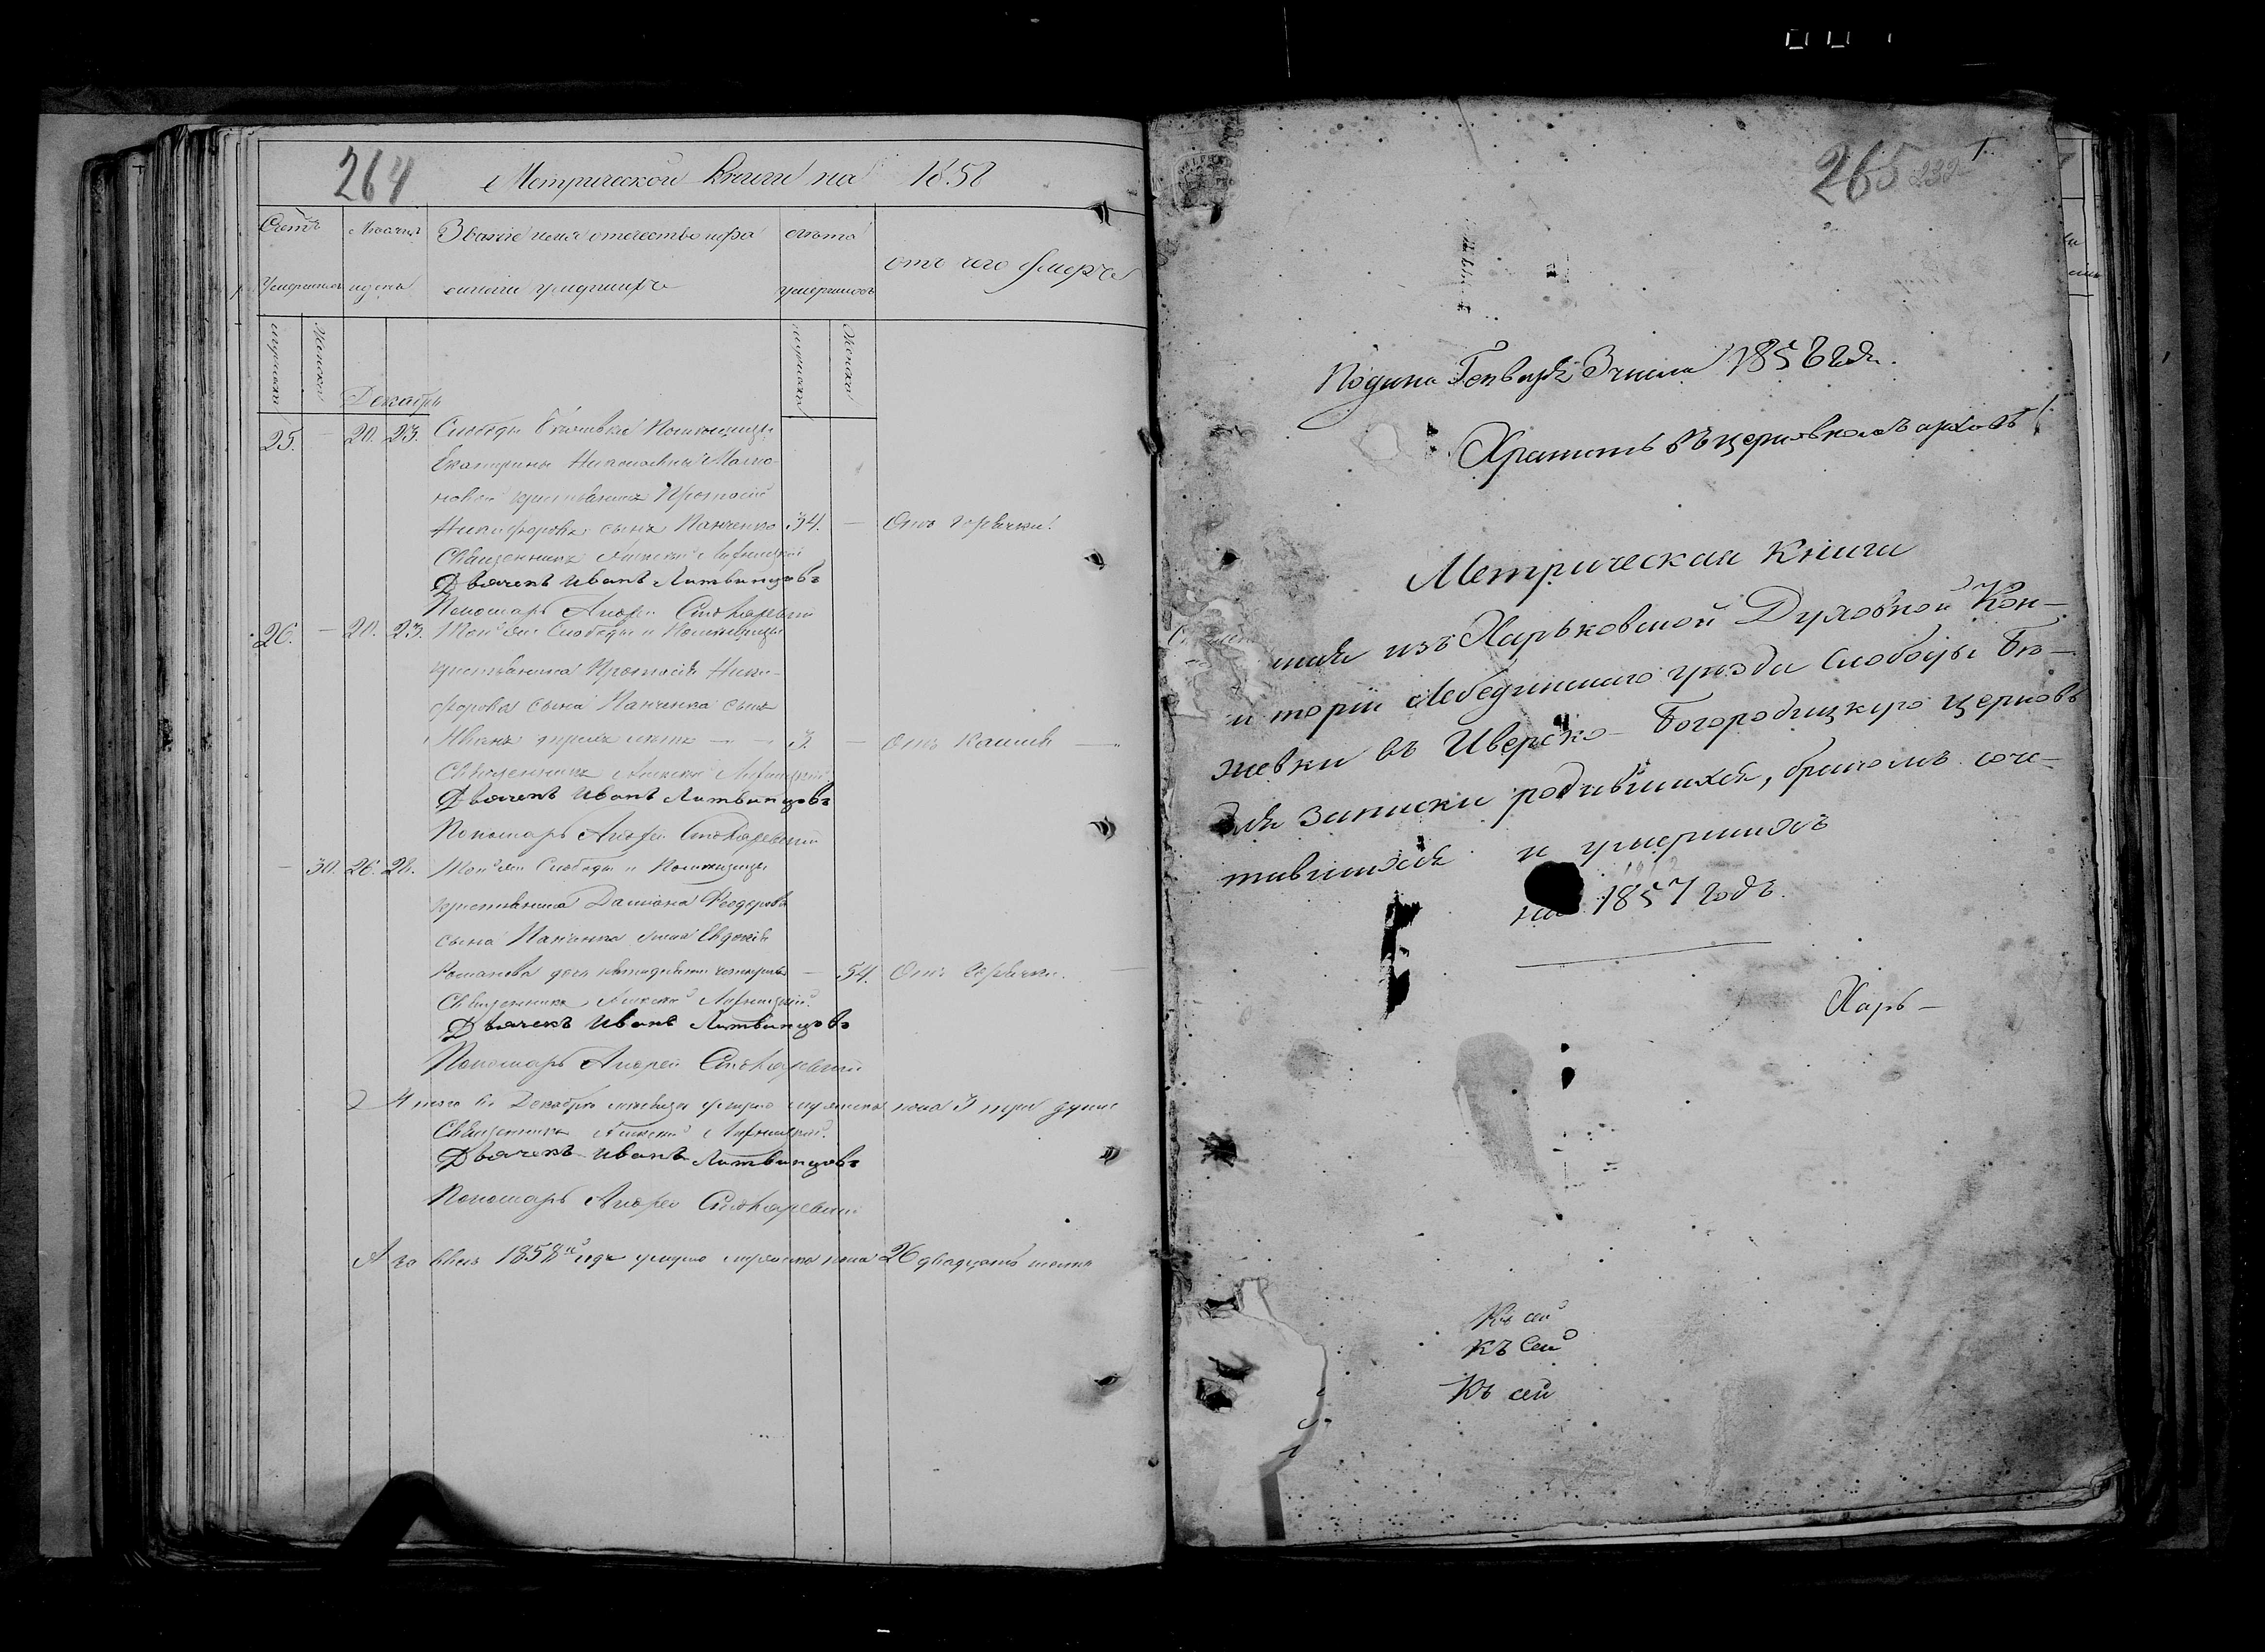 264
Метрической Книги на 1858
Счетъ
Умершихъ
Мѣсяцъ
и день
Званіе имя отечество и фа
милія умершихъ
Лѣта
умершихъ
отъ чего умеръ
мужеска
женска
мужеска
женска
Декабрь
25. — 20. 23. Слободы Бѣжевки Помѣщицы
Екатерины Николаевны
крестьянинъ Протасій
Никифоровъ сынъ Панченко 34. — Отъ горячки.
Священникъ Алексій
Дьячекъ Иванъ Литвинцовъ
Пономарь Андрей
26. — 20. 23. Той же Слободы и Помѣщицы
крестьянина Протасія Ники-
форова сына Панченка сынъ
Иванъ трехъ лѣтъ — 3. — Отъ Кашля —
Священникъ Алексій
Дьячекъ Иванъ Литвинцовъ
Пономарь Андрей
— 30. 26. 28. Той же Слободы и Помѣщицы
крестьянина Даміана Феодорова
сына Панченка жена Евдокія
Романова дочь пятидесяти четырехъ — 54. Отъ Горячки.
Священникъ Алексій
Дьячекъ Иванъ Литвинцовъ
Пономарь Андрей
Итого въ Декабрѣ мѣсяцѣ умерло мужеска пола 3 три души
Священникъ Алексій
Дьячекъ Иванъ Литвинцовъ
Пономарь Андрей
А за весь 1858й годъ умерло мужеска пола 26 двадцать шесть
265 232 1
Подана Генваря 3 числа 1858 года.
Хранить въ церковномъ архивѣ
Метрическая Книга
из Харьковской Духовной Кон-
систоріи Лебединскаго уѣзда Слободы Бѣ-
жевки въ Иверско-Богородицкую церковь
для записки родившихся, бракомъ соче-
тавшихся и умершихъ
на 1857 годъ.
Харь—
Къ сей
Къ Сей
Къ сей